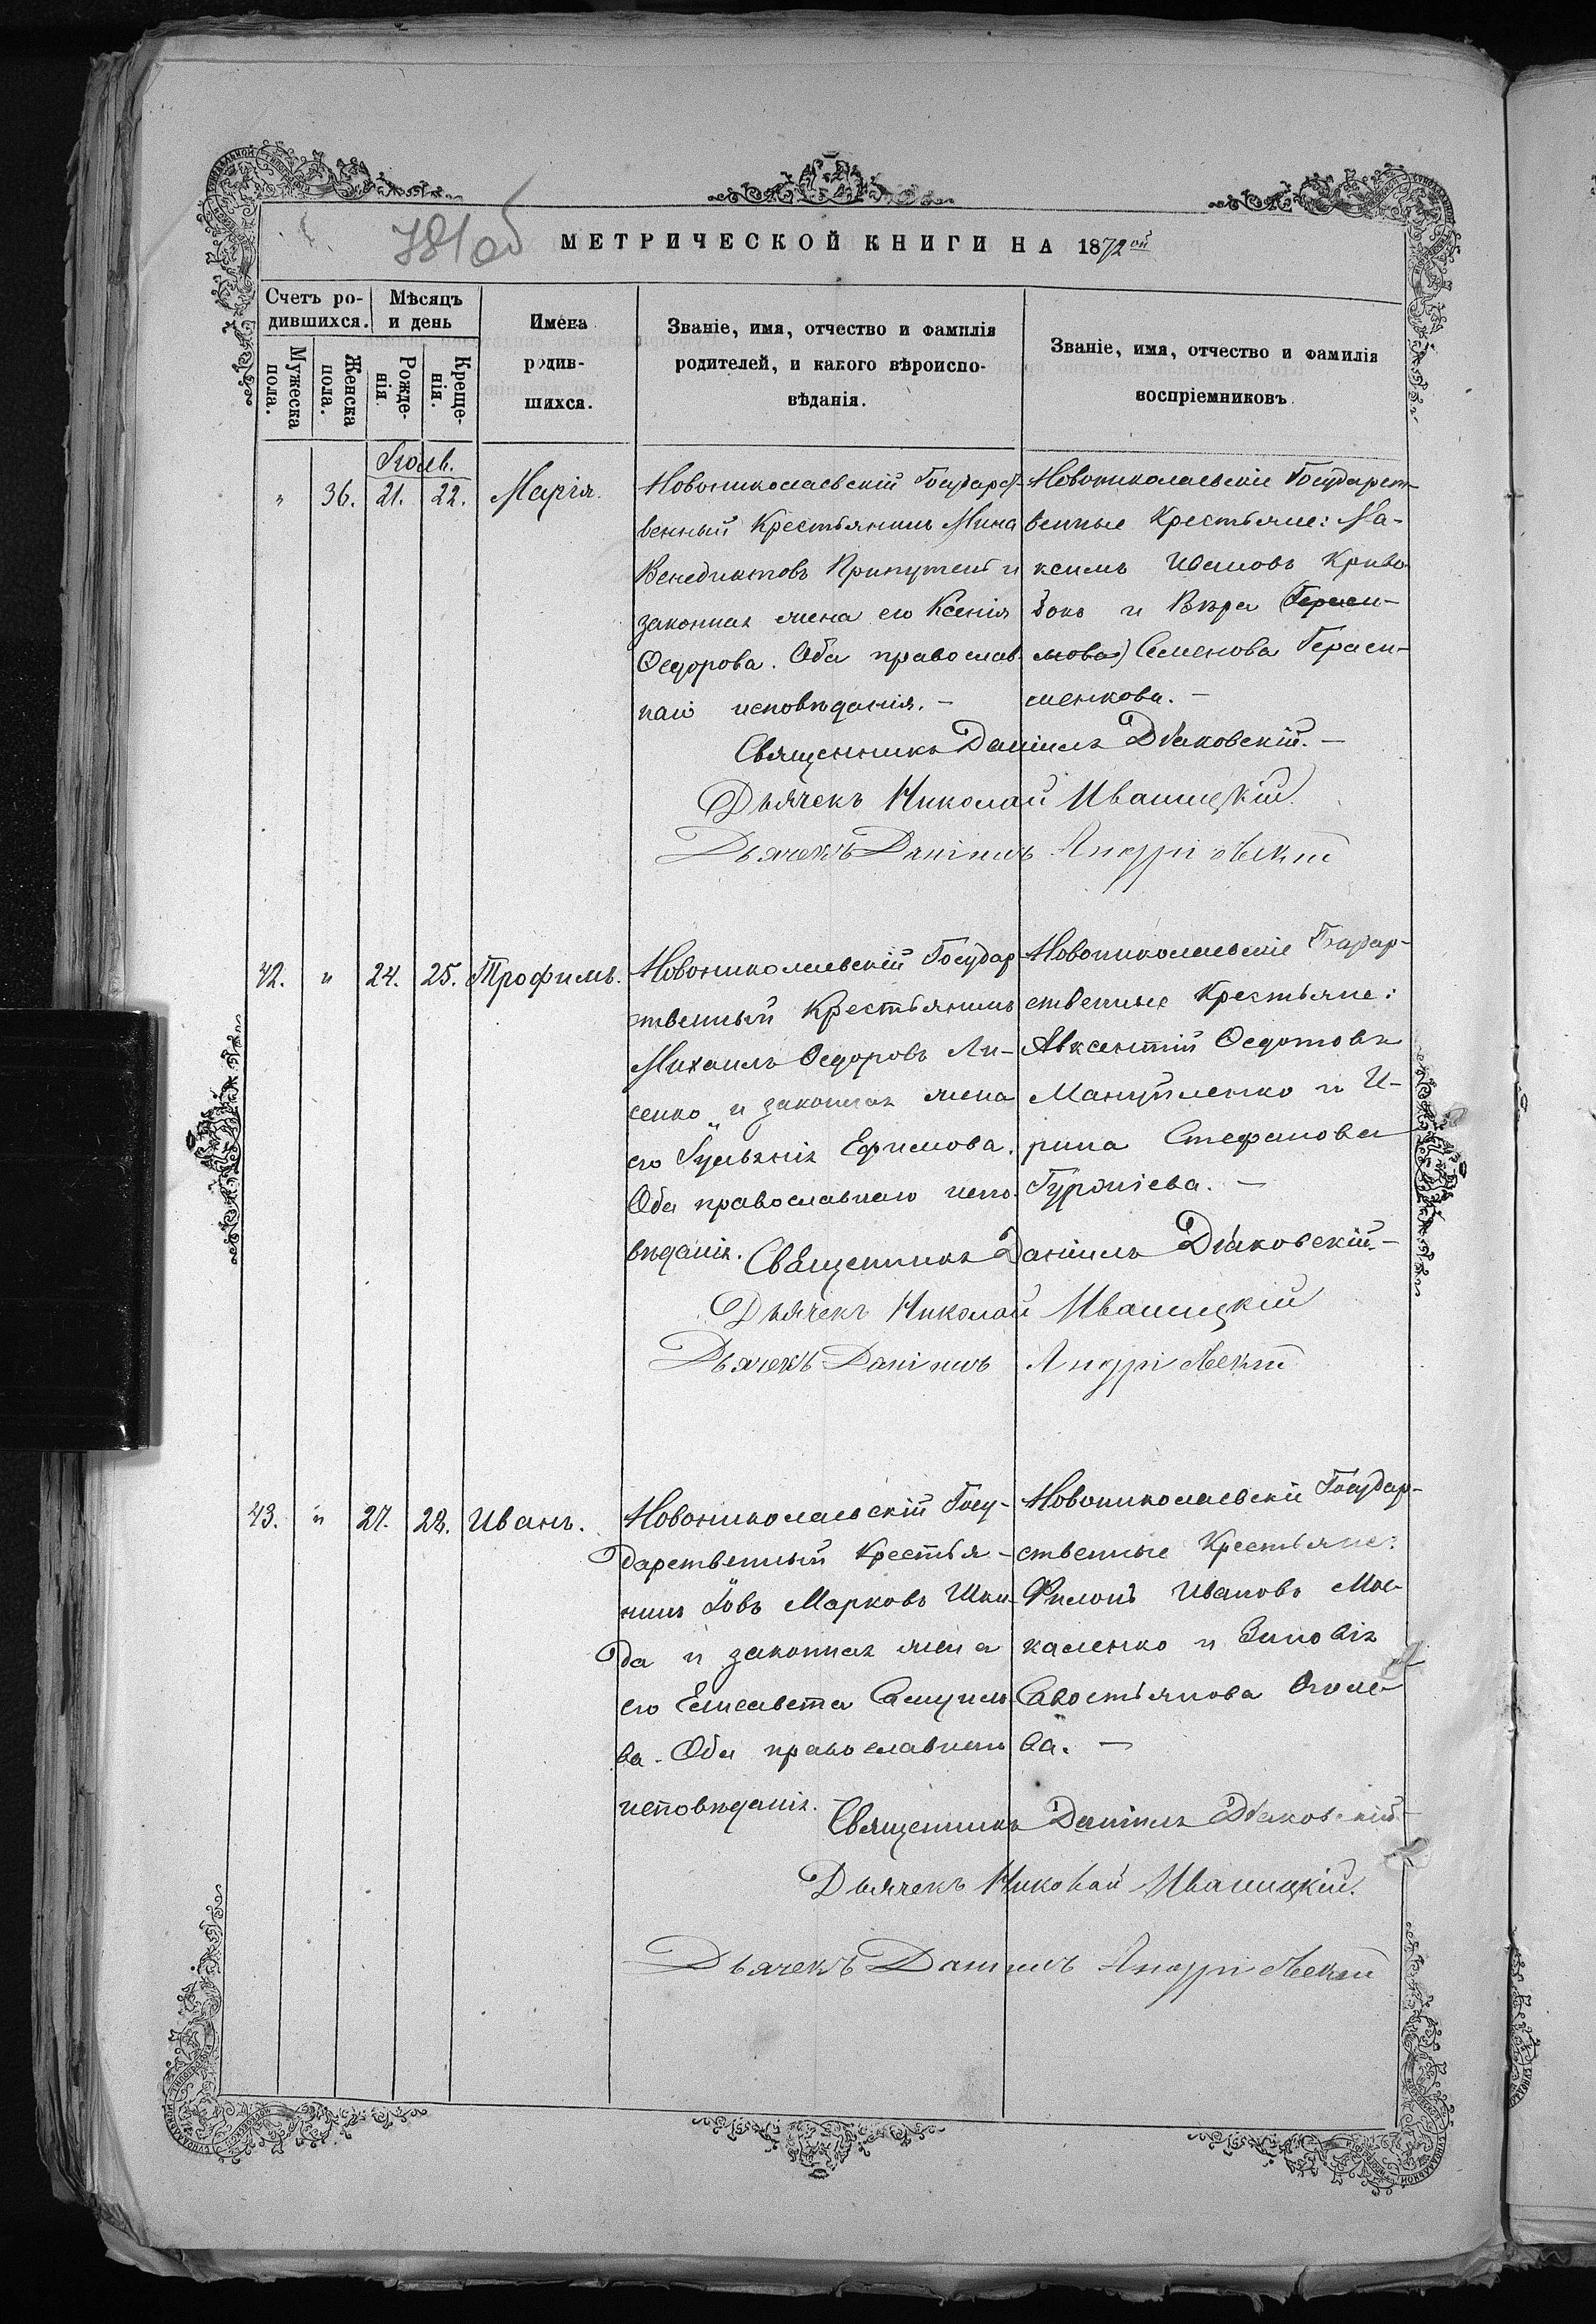 781об
МЕТРИЧЕСКОЙ КНИГИ НА 1872ой
Счетъ ро-
дившихся.
Мѣсяцъ
и день
Мужеска
пола.
Женска
пола.
Рожде-
нія
Креще-
нія.
Имена
родив-
шихся.
Званіе, имя, отчество и фамилія
родителей, и какого вѣроиспо-
вѣданія.
Званіе, имя, отчество и фамилія
воспріемниковъ
Іюль.
" 36. 21. 22. Марія.
Новониколаевскій Государст-
венный Крестьянинъ Мина
Венедиктовъ Припутень и
законная жена его Ксенія
Ѳедорова. Оба православ-
наго исповѣданія. –
Новониколаевскіе Государст-
венные Крестьяне: Ма-
ксимъ Ивановъ Криво-
бокъ и Вѣра (Гераси-
мова) Семенова Гераси-
менкова. –
Священникъ Даніилъ Дьяковскій. –
Дьячекъ Николай Ивашицкій.
Дьячекъ Даніилъ Андріевскій
42. " 24. 25. Трофимъ.
Новониколаевскій Государ-
ственный Крестьянинъ
Михаилъ Ѳедоровъ Ли-
сенко и законная жена
его Іуліанія Ефимова.
Оба православнаго испо-
вѣданія.
Новониколаевскіе Государ-
ственные Крестьяне:
Авксентій Ѳедотовъ
Мануйленко и И-
рина Стефанова
Гуржіева. –
Священникъ Даніилъ Дьяковскій –
Дьячекъ Николай Ивашицкій
Дьячекъ Даніилъ Андріевскій
43. " 27. 28. Иванъ.
Новониколаевскій Госу-
дарственный Крестья-
нинъ Іовъ Марковъ Шки-
да и законная жена
его Елисавета Самуило-
ва. Оба православнаго
исповѣданія.
Новониколаевскіе Государ-
ственные Крестьяне:
Филонъ Ивановъ Мос-
каленко и Зиновія
Савостьянова
ва. –
Священникъ Даніилъ Дьяковскій –
Дьячекъ Николай Ивашицкій.
Дьячекъ Даніилъ Андріевскій